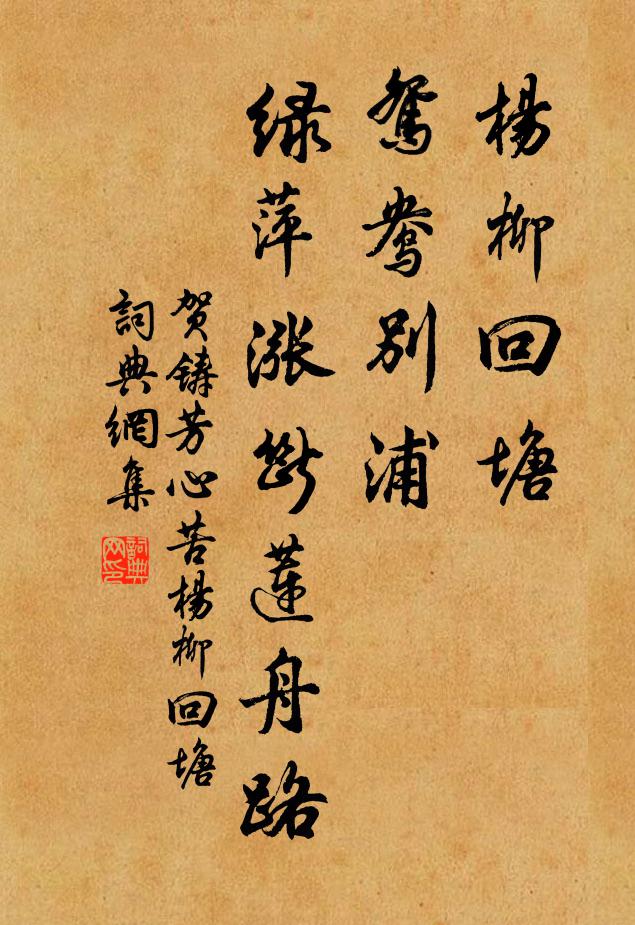 楊柳回塘
鴛鴦別浦
绿萍漲斷蓮舟路
贺鑄芳心苦楊柳回塘
詞典網集
詞典網印